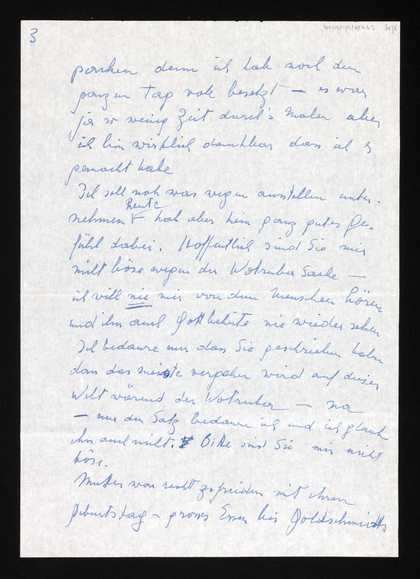 3
denn ich hab noch den
ganzen Tag voll besetzt – es war
ja so wenig Zeit durch's Malen aber
ich bin wirklich dankbar dass ich es
gemacht habe
Ich soll noch was wegen ausstellen unter-
nehmen heute hab aber kein ganz gutes Ge-
fühl dabei. Hoffentlich sind Sie mir
nicht böse wegen der Wotruba Sache –
ich will nie mir von dem Menschen hören
und ihn auch Gottbehüte nie wieder sehen
Ich bedaure nur dass Sie geschrieben haben
dass das meiste vergehen wird auf dieser
Welt während der Wotruba – na
– nur der Satz bedaure ich und ich glaub
ihn auch nicht. Bitte sind Sie mir nicht
böse.
Mutter war recht zufrieden mit ihrem
Geburtstag – grosses Essen bei Goldschmidts